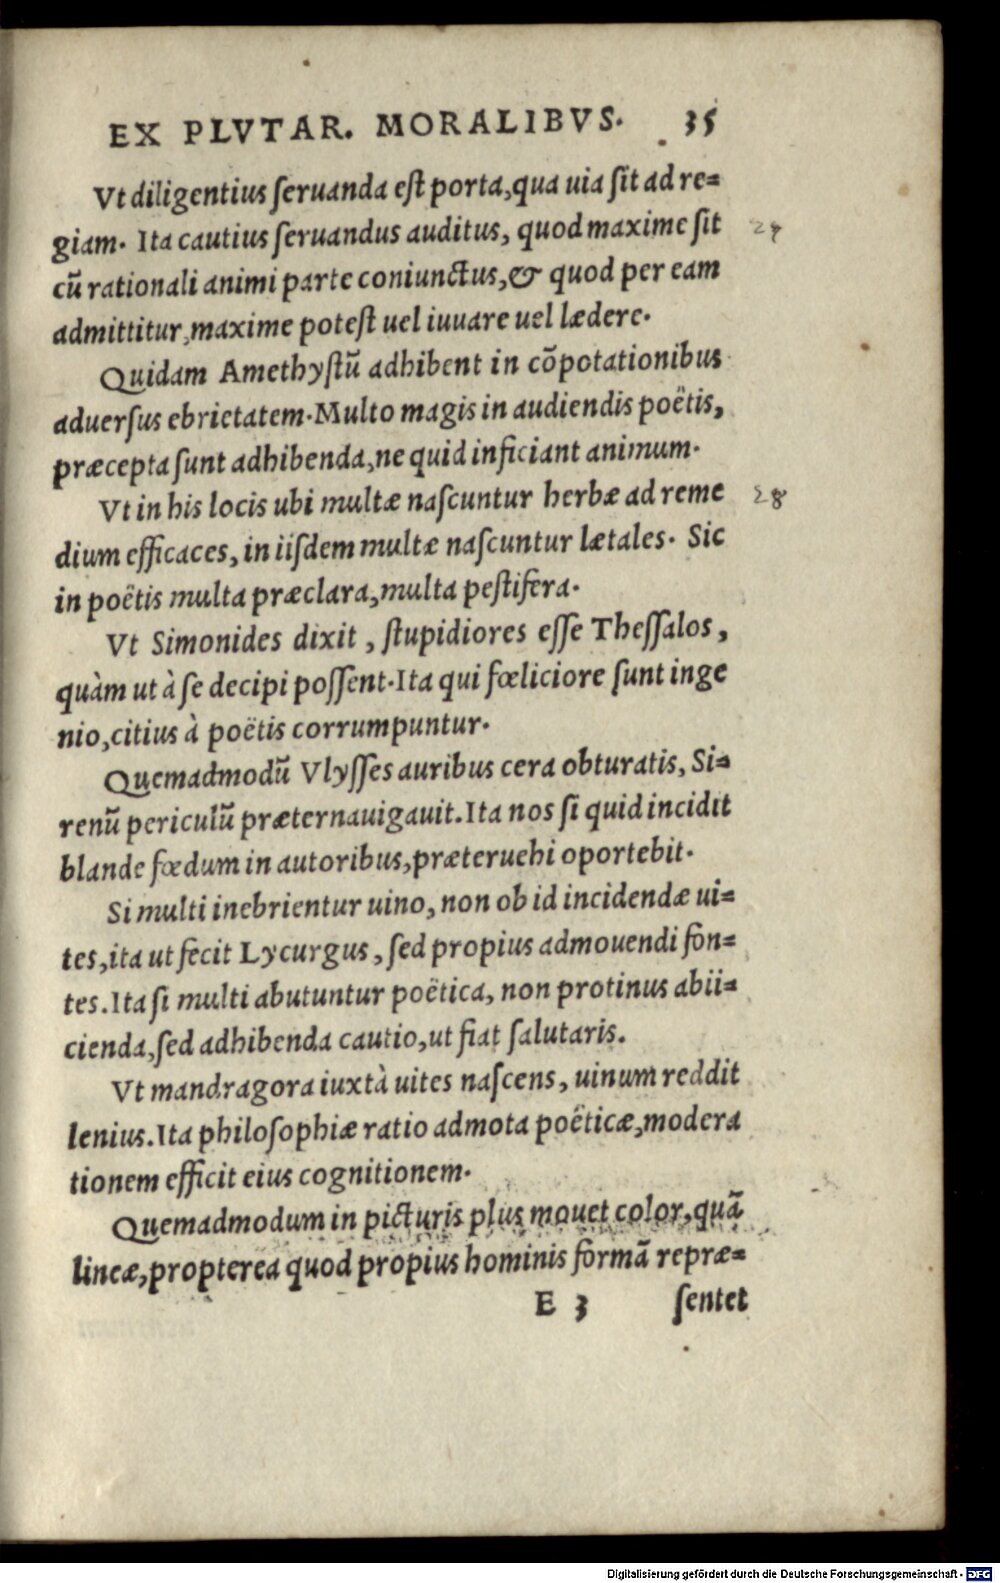 EX PLVTAR. MORALIBVS. 35
Vt diligentius ſeruanda eſt porta, qua uia ſit ad re=
giam. Ita cautius ſeruandus auditus, quod maxime ſit
cū rationali animi parte coniunctus, & quod per eam
admittitur, maxime poteſt uel iuuare uel lædere.
Quidam Amethyſtū adhibent in cōpotationibus
aduerſus ebrietatem. Multo magis in audiendis poëtis,
præcepta ſunt adhibenda, ne quid inficiant animum.
Vt in his locis ubi multæ naſcuntur herbæ ad reme
28
dium efficaces, in iiſdem multæ naſcuntur lætales. Sic
in poëtis multa præclara, multa peſtifera.
Vt Simonides dixit, ſtupidiores eſſe Theſſalos,
quàm ut à ſe decipi poſſent. Ita qui fœliciore ſunt inge
nio, citius à poëtis corrumpuntur.
Quemadmodū Vlyſſes auribus cera obturatis, Si=
renū periculū præternauigauit. Ita nos ſi quid incidit
blande fœdum in autoribus, præteruehi oportebit.
Si multi inebrientur uino, non ob id incidendæ ui=
tes, ita ut fecit Lycurgus, ſed propius admouendi fon=
tes. Ita ſi multi abutuntur poëtica, non protinus abii=
cienda, ſed adhibenda cautio, ut fiat ſalutaris.
Vt mandragora iuxtà uites naſcens, uinum reddit
lenius. Ita philoſophiæ ratio admota poëticæ, modera
tionem efficit eius cognitionem.
Quemadmodum in picturis plus mouet color, quā
lineæ, propterea quod propius hominis formā repræ=
E 3 ſentet
Digitalisierung gefördert durch die Deutsche Forschungsgemeinschaft - DFG